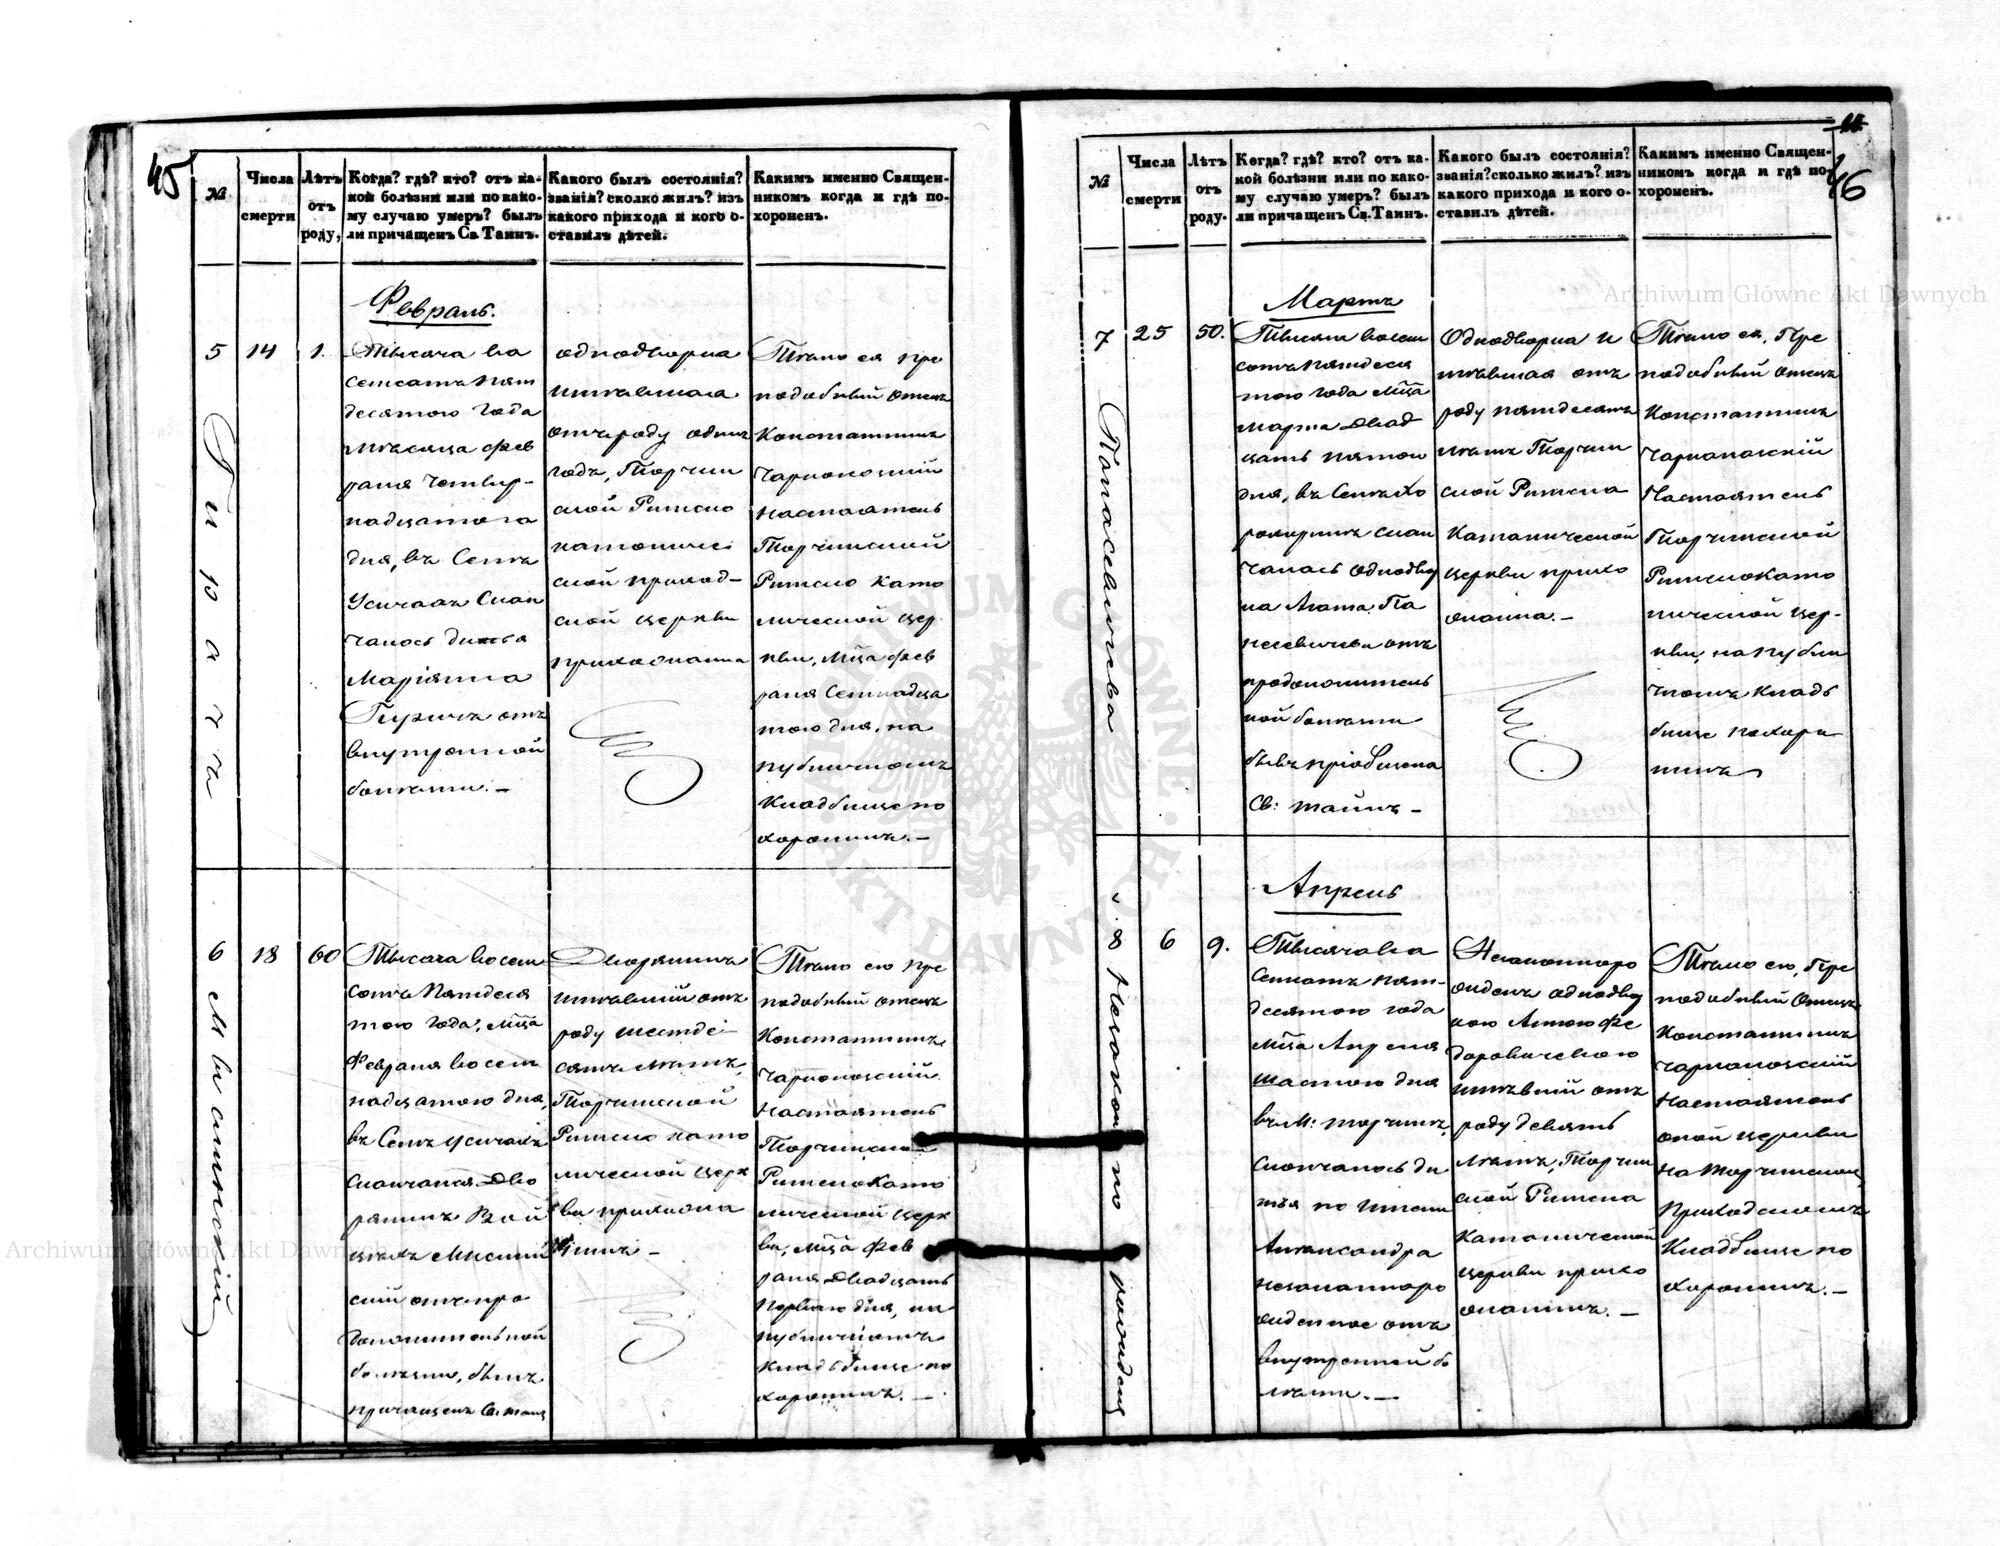 45
№
Числа
смерти
Лѣтъ
отъ
роду,
Когда? гдѣ? кто? отъ ка-
кой болѣзни или по како-
му случаю умеръ? былъ
ли причащенъ Св. Таинъ.
Какого былъ состоянія?
званія? сколко жилъ? изъ
какого прихода и кого о-
ставилъ дѣтей.
Какимъ именно Священ-
никомъ когда и гдѣ по-
хороненъ.
Февраль.
5
14
1.
Гирата
Тысяча во
семсотъ пят
десятого года
мѣсяца фев
раля четыр-
надцатого
дня, въ Селѣ
Усичахъ Скон
чалось дитя
Маріянна
отъ
внутренной
болѣзни. –
однодворка
имѣвшая
отъ роду одинъ
годъ, Торчин
ской Римско
католиче
ской приход-
ской церкви
прихожанка
Тѣло ея пре
подобный отецъ
Константинъ
Чарноцкій
настоятель
Торчинской
Римско Като
лической цер
кви, мца Фев
раля Семнадца
того дня, на
публичномъ
Кладбище по
хоронилъ. –
6
18
60
Тысяча восем
сотъ Пятдеся
того года, мца
Февраля восем
надцатого дня,
въ Селѣ Усичахъ
Скончался Дво
рянинъ Вой
цѣхъ
скій отъ про
должительной
болѣзни, бывъ
причащенъ Св. таинъ
Дворянинъ
имѣвшій отъ
роду шестде
сятъ лѣтъ,
Торчинской
Римско като
лической церк
ви прихожа
нинъ –
Тѣло его пре
подобный отецъ
Константинъ
Чарноцкій
Настоятель
Торчинской
Римско Като
лической церк
ви, мца Фев
раля Двадцать
первого дня, на
публичномъ
кладбище по
хоронилъ. –
Archiwum Główne Akt Dawnych
46
№
Числа
смерти
Лѣтъ
отъ
роду.
Когда? гдѣ? кто? отъ ка-
кой болѣзни или по како-
му случаю умеръ? былъ
ли причащенъ Св. Таинъ.
Какого былъ состоянія?
званія? сколько жилъ? изъ
какого прихода и кого о-
ставилъ дѣтей.
Какимъ именно Священ-
никомъ когда и гдѣ по-
хороненъ.
Archiwum Główne Akt Dawnych
Мартъ
7
25
50.
Панасевичева
Тысяча восем
сотъ пятдеся
того года мца
Марта Двад
цать пятого
дня, въ Селѣ Хо
скон
чалась Однодвор
ка Агата Па
насевичева отъ
продолжитель
ной болѣзни
бывъ пріобщена
Св: тайнъ –
Однодворка и
имѣвшая отъ
роду пятдесятъ
лѣтъ Торчин
ской Римско
Католической
церкви прихо
жанка. –
Тѣло ея, Пре
подобный отецъ
Константинъ
Чарноцкій
Настоятель
Торчинской
Римскокато
лической цер-
кви, на публи
чномъ кладъ
бище похоро
нилъ
Апрель
8
6
9.
Незаконнорожденц
Тысяча во
семсотъ пят-
десятого года
мца Апреля
шестого дня
въ м: Торчинѣ,
скончалось ди
тя по имени
Александра
незаконноро
жденное отъ
внутренней бо
лѣзни. –
Незаконноро
жденъ однодвор
кою Анною Фе
доровичевою
имѣвшій отъ
роду девять
лѣтъ, Торчин
ской Римско
Католической
церкви прихо
жанинъ. –
Тѣло его, Пре
подобный Отецъ
Константинъ
Чарноцкій
Настоятель
оной церкви
на Торчинском
Приходскомъ
Кладбище по
хоронилъ. –
ARCHIWUM GŁÓWNE AKT DAWNYCH